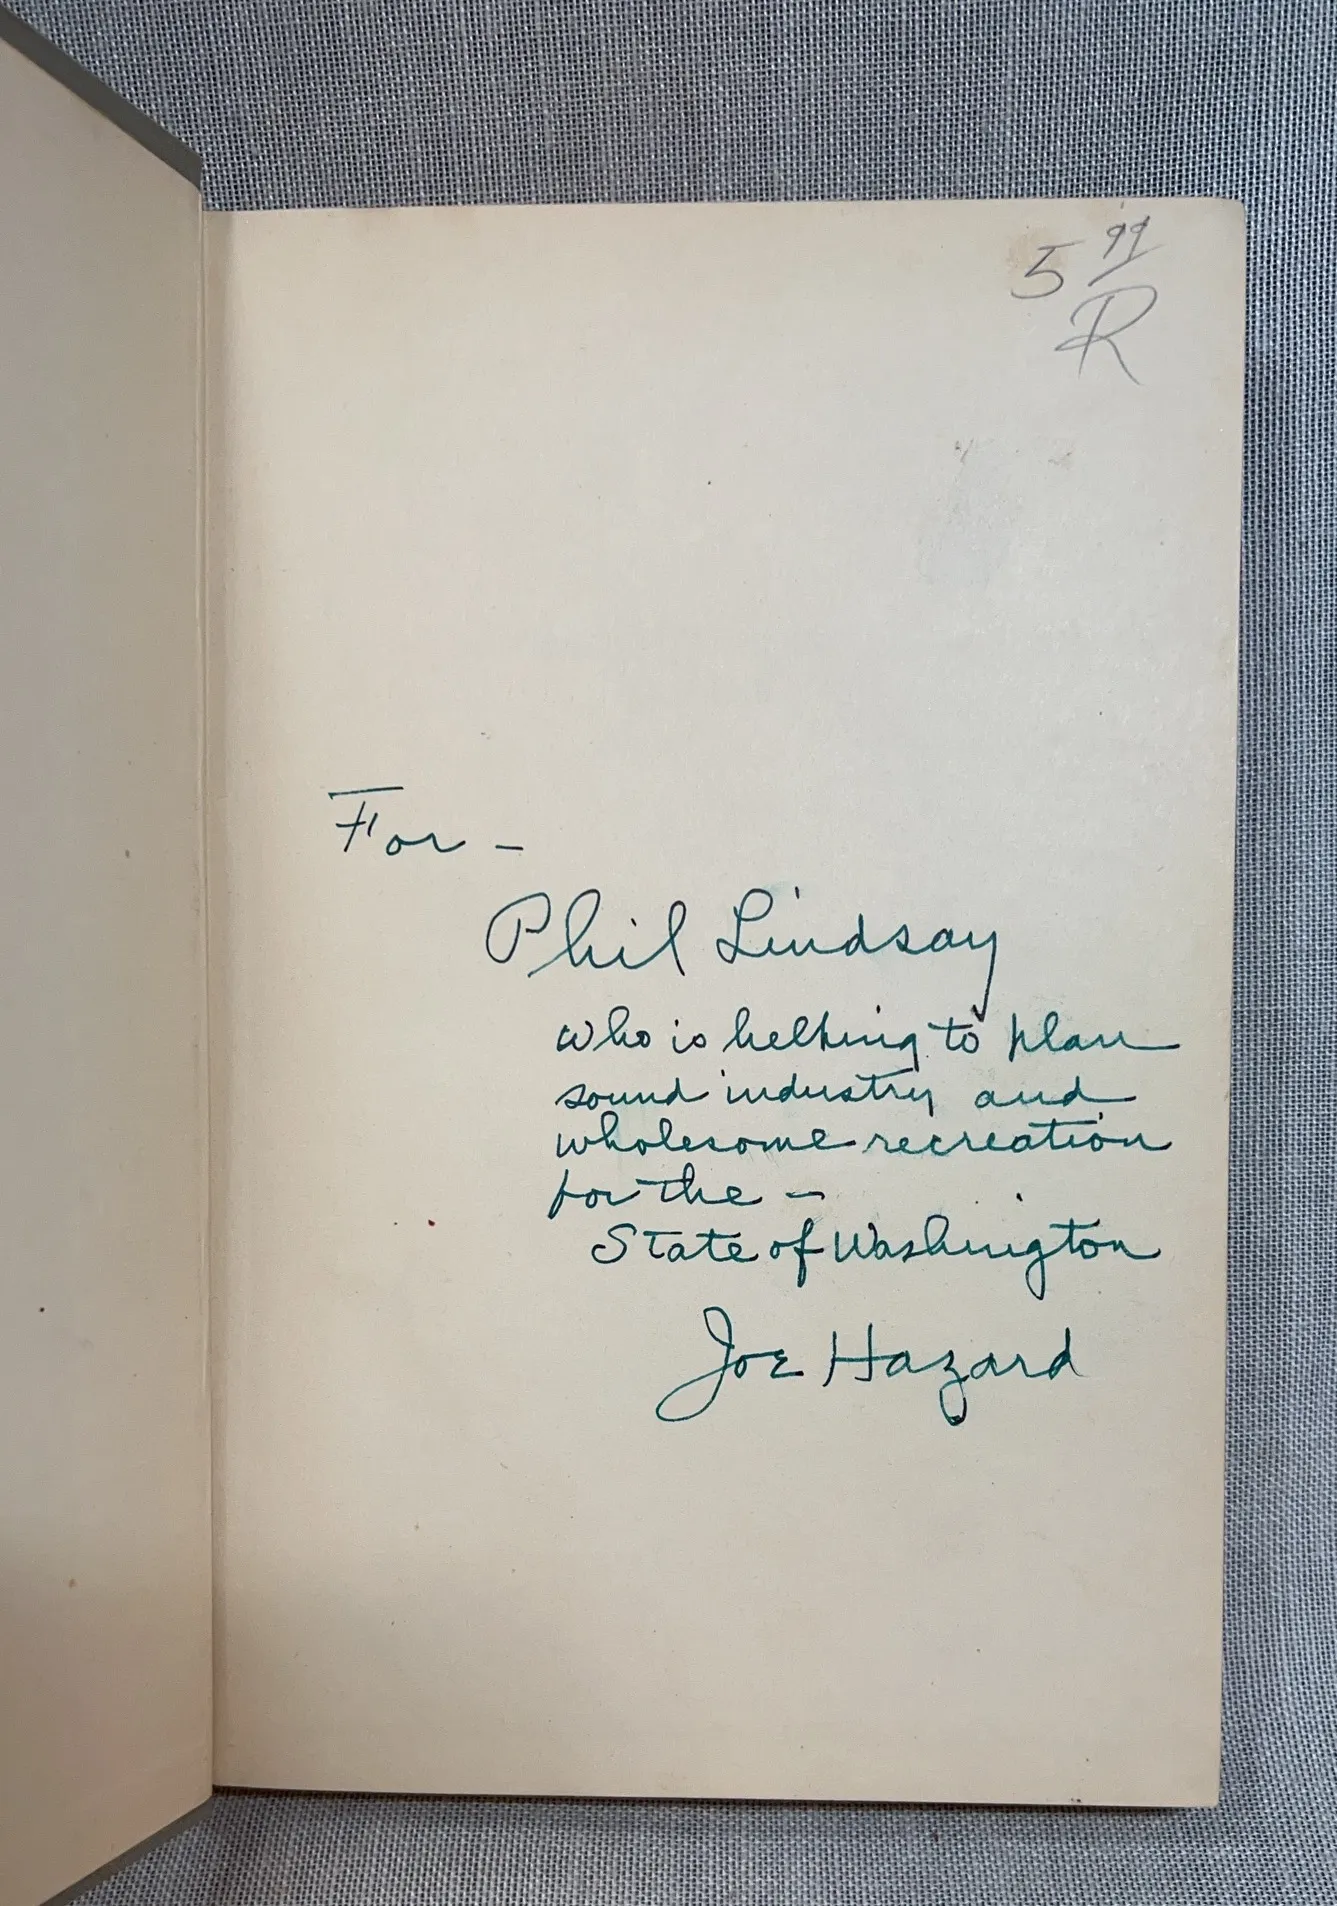 5 99
R
For -
Phil Lindsay
who is helping to plan
sound industry and
wholesome recreation
for the -
State of Washington
Joe Hazard